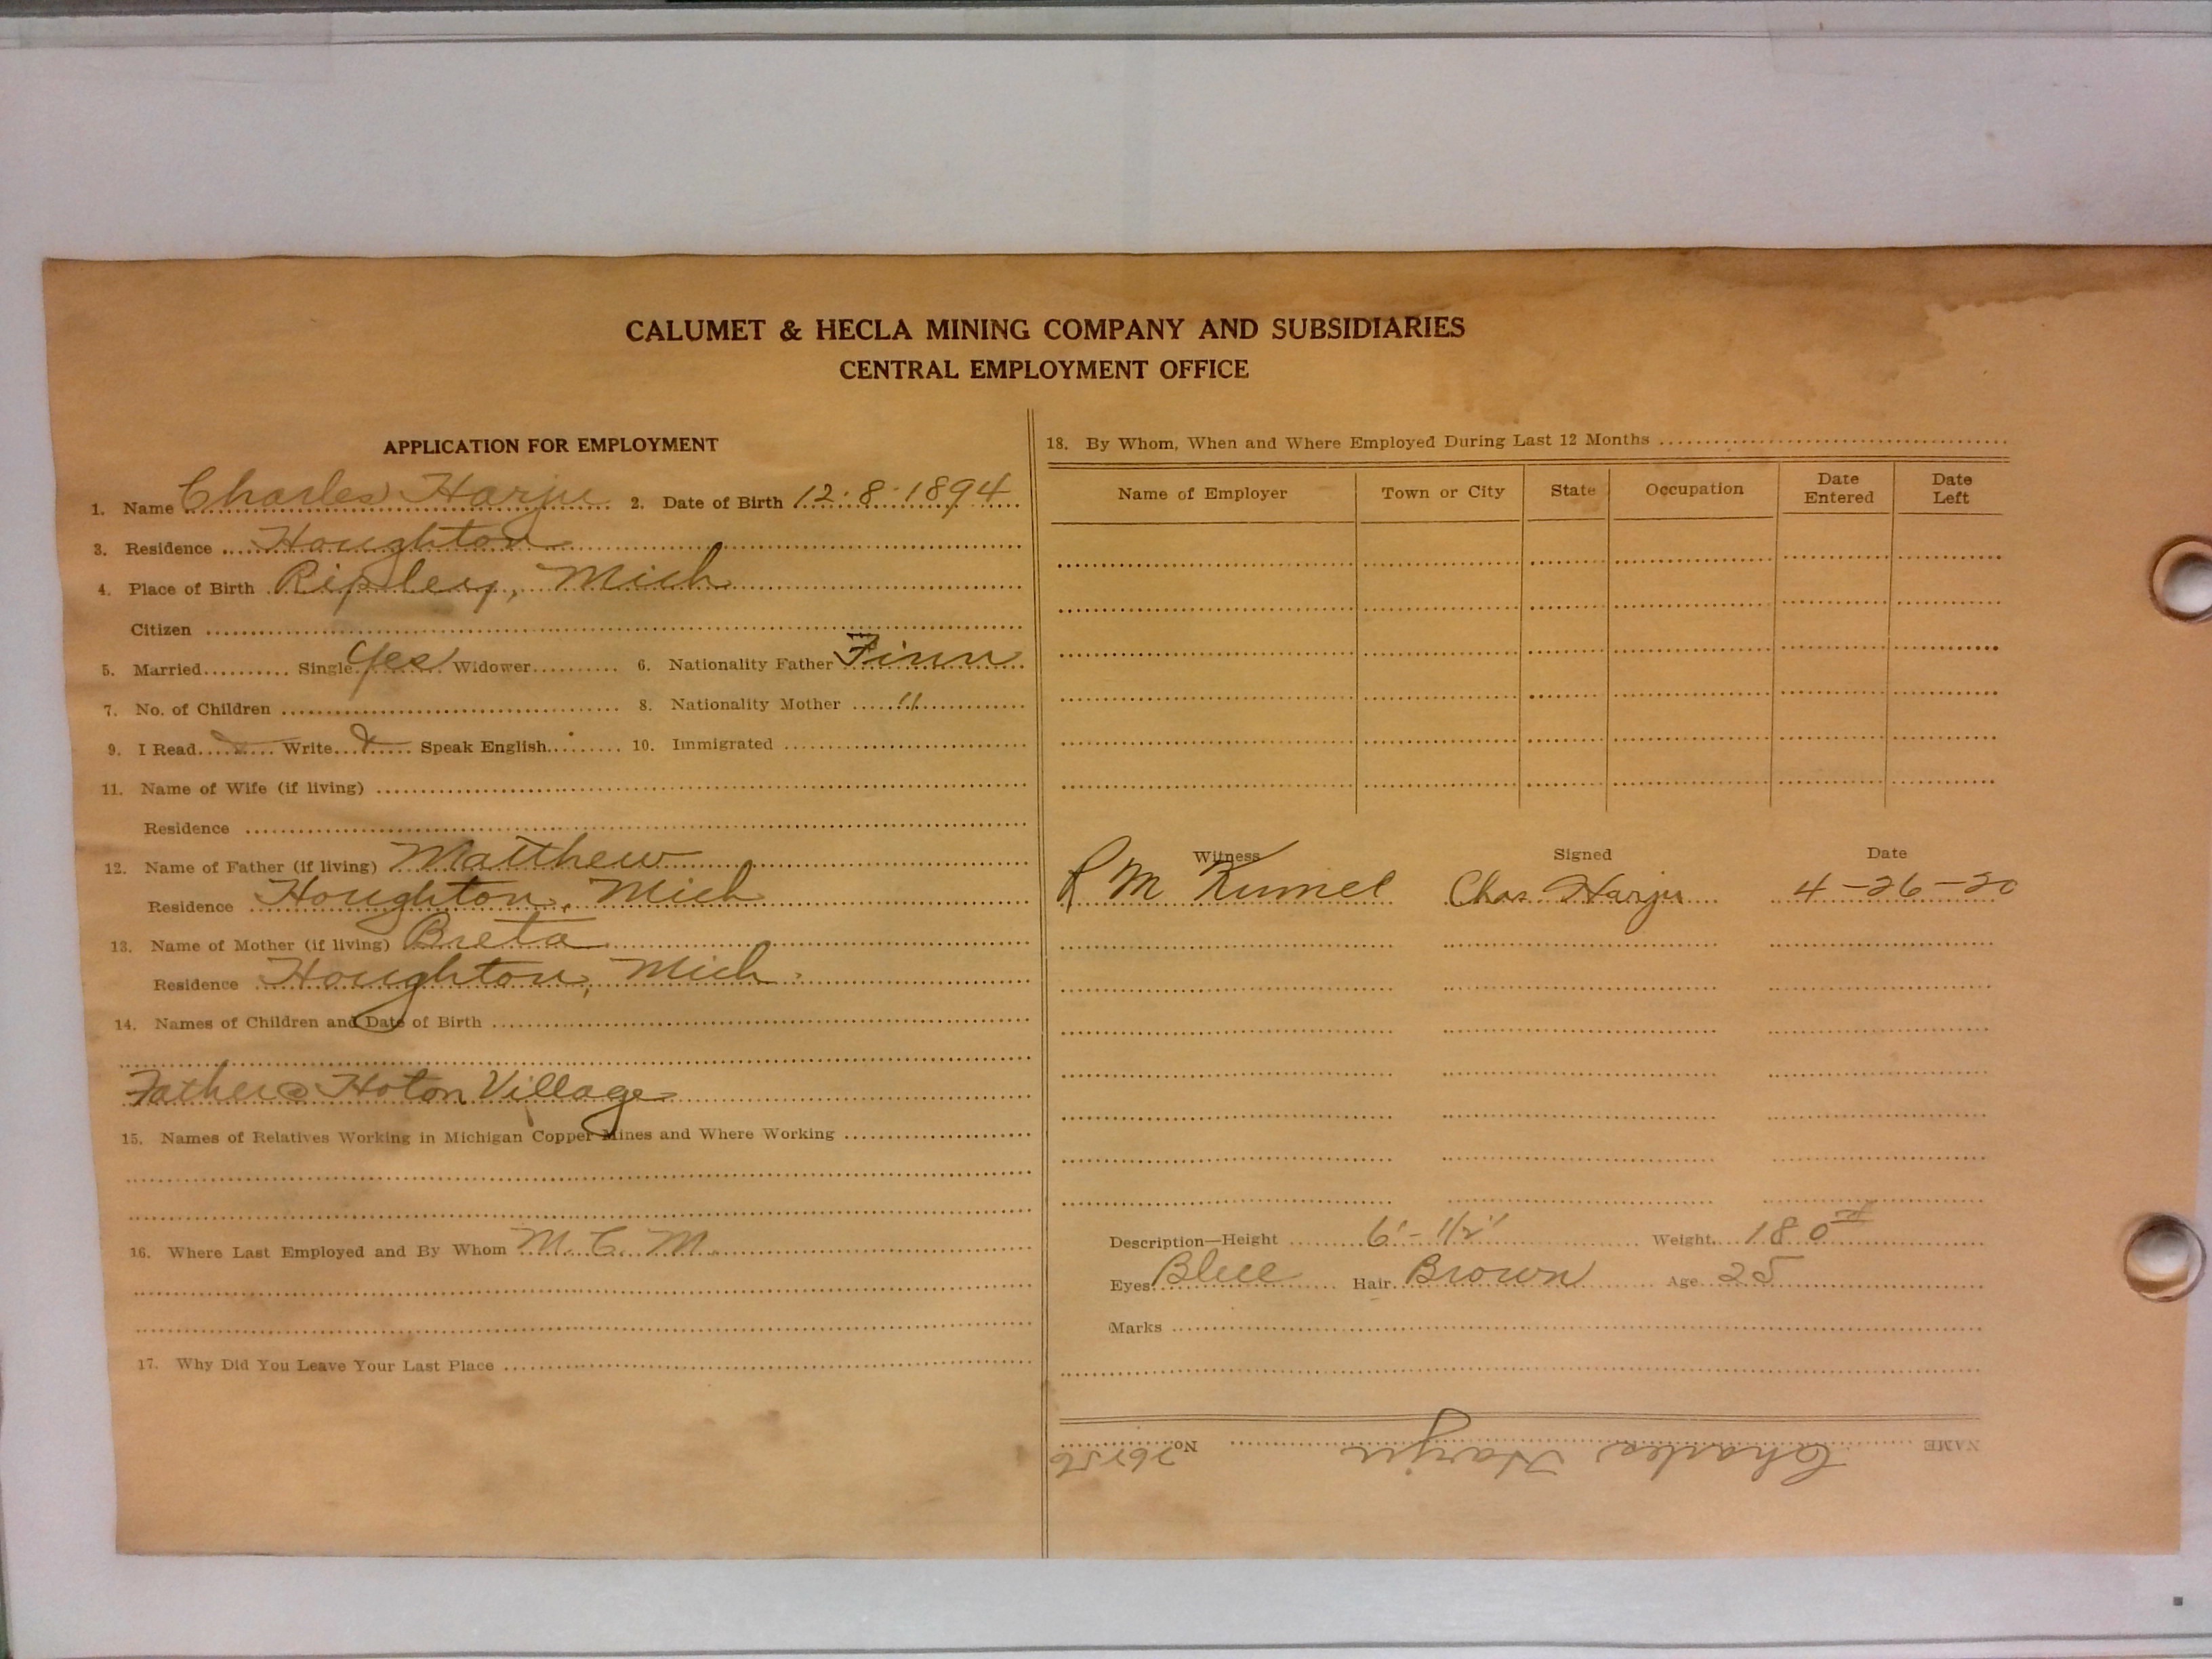 CALUMET & HECLA MINING COMPANY AND SUBSIDIARIES
CENTRAL EMPLOYMENT OFFICE
APPLICATION FOR EMPLOYMENT
1. Name Charles Harju 2. Date of Birth 12.8.1894
3. Residence Houghton
4. Place of Birth Ripley, Mich
Citizen
5. Married Single Yes Widower 6. Nationality Father Finn
7. No. of Children 8. Nationality Mother "
9. I Read Write Speak English 10. Immigrated
11. Name of Wife (if living)
Residence
12. Name of Father (if living) Matthew
Residence Houghton, Mich
13. Name of Mother (if living) Breta
Residence Houghton, Mich
14. Names of Children and Date of Birth
Father @ Hoton Village
15. Names of Relatives Working in Michigan Copper Mines and Where Working
16. Where Last Employed and By Whom M. C. M.
17. Why Did You Leave Your Last Place
18. By Whom, When and Where Employed During Last 12 Months
Name of Employer Town or City State Occupation Date Entered Date Left
Witness Signed Date
R M Chas. Harju 4-26-20
Description—Height 6'-1/2" Weight 180#
Eyes Blue Hair Brown Age 25
Marks
NAME Charles Harju No.